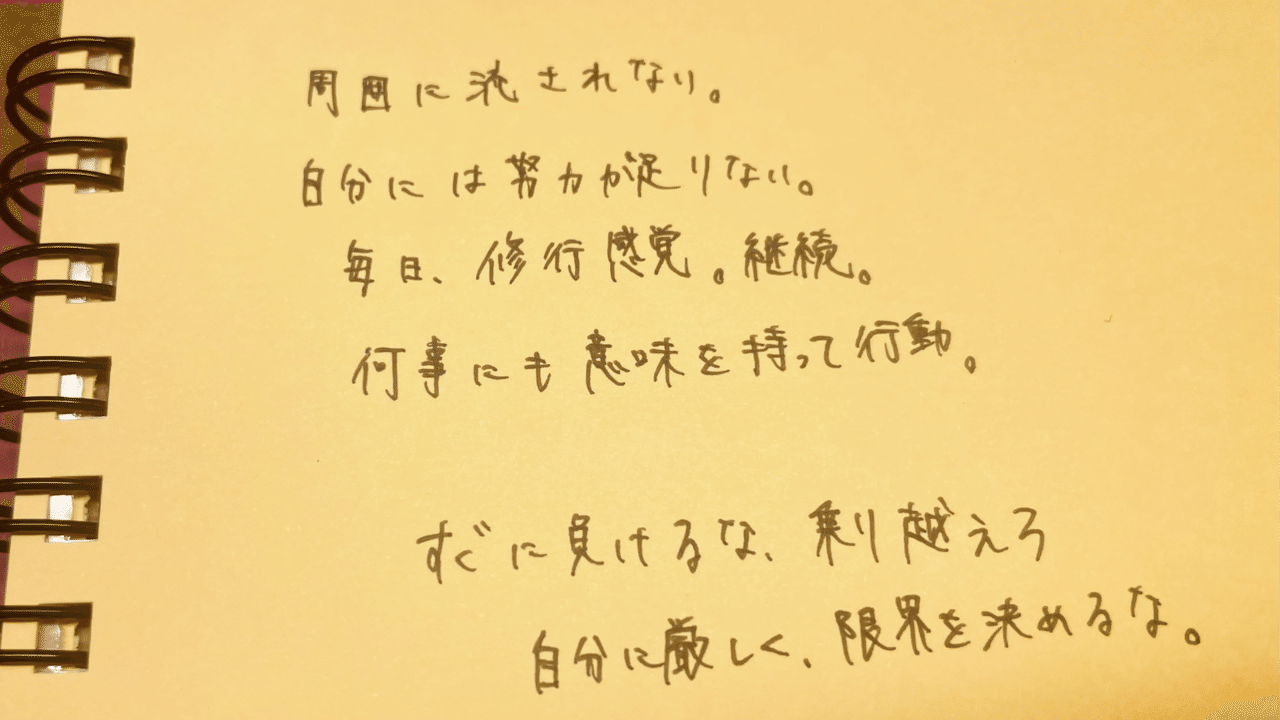 周囲に流されない。
自分には努力が足りない。
毎日、修行感覚。継続。
何事にも意味を持って行動。
すぐに負けるな、乗り越えろ
自分に厳しく、限界を決めるな。